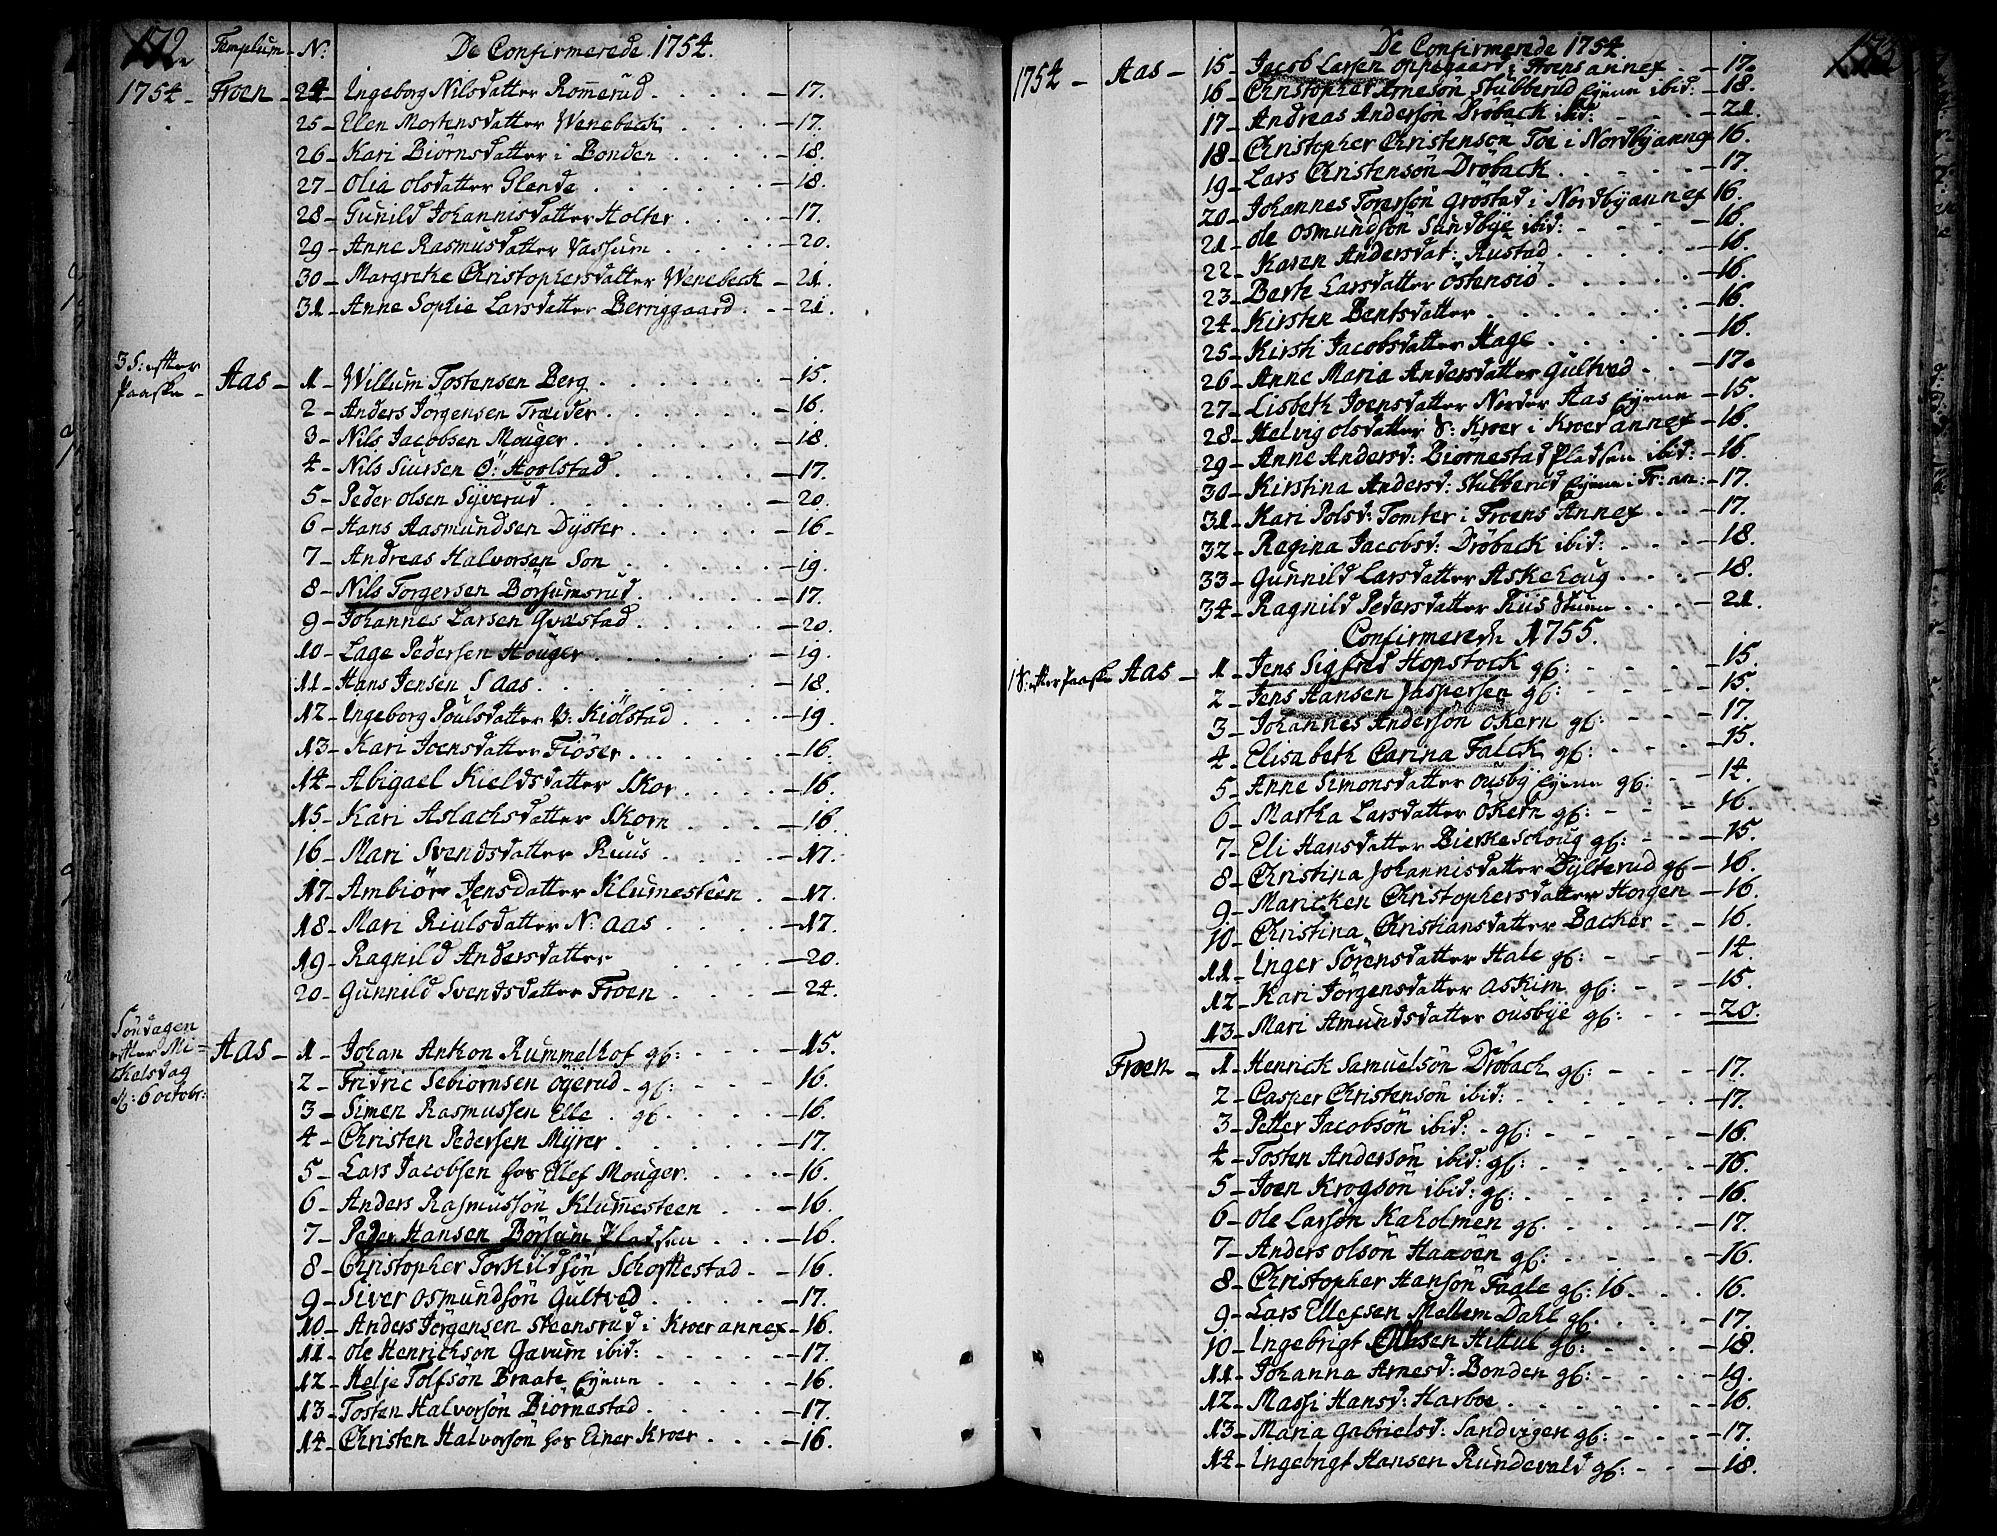 172
Templum - N:
De Confirmerede 1754.
1754 - Froen - 24 - Ingeborg Nilsdatter Romerud - 17.
25 - Elen Mortensdatter Wenebeck - 17.
26 - Kari Biörnsdatter i Bonden - 18.
27 - Olia olsdatter Glende - 18.
28 - Gunild Johannisdatter Holter - 17.
29 - Anne Rasmusdatter Vassum - 20.
30 - Margrete Christophersdatter Wenebeck - 21.
31 - Anne Sophie Larsdatter Berriggaard - 21.
3 S: efter Paaske - Aas - 1 - Willum Tostensen Berg - 15.
2 - Anders Jörgensen Træider - 16.
3 - Nils Jacobsen Mouger - 18.
4 - Nils Siursen Ö: Hoolstad - 17.
5 - Peder olsen Syverud - 20.
6 - Hans Aasmundsen Dyster - 16.
7 - Andreas Halvorsen Son - 19.
8 - Nils Torgersen Börsumsrud - 17.
9 - Johannes Larsen Qvæstad - 20.
10 - Lage Pedersen Houger - 19.
11 - Hans Jensen S Aas - 18.
12 - Ingeborg Poulsdatter V: Kiölstad - 19.
13 - Kari Joensdatter Fiöser - 16.
14 - Abigael Kieldsdatter Skor - 16.
15 - Kari Aslachsdatter Skorn - 16.
16 - Mari Svendsdatter Ruus - 17.
17 - Ambiör Jensdatter Klumesteen - 17.
18 - Mari Riulsdatter N: Aas - 17.
19 - Ragnild Andersdatter - 20.
20 - Gunnild Svendsdatter Froen - 24.
Söndagen efter Mikelsdag 6 octobr: Aas - 1 - Johan Anton Rummelhof gf: - 15.
2 - Fridric Sebiörnsen ögerud - gf: - 16.
3 - Simen Rasmussen Elle gf. - 16.
4 - Christen Pedersen Myrer - 17.
5 - Lars Jacobsen hos Ellef Mouger - 16.
6 - Anders Rasmussön Klumesteen - 16.
7 - Peder Hansen Börsum Pladsen - 16.
8 - Christopher Torkildsön Schoftestad - 16.
9 - Siver Osmundsön Gultved - 17.
10 - Anders Jörgensen steensrud i Kroer annex - 16.
11 - Ole Henrichson Garum ibid: - 17.
12 - Helje Tolfsön Braate Eyene - 16.
13 - Tosten Halvorsön Biörnestad - 17.
14 - Christen Halvorsön hos Einer Kroer - 16.
173
De Confirmerede 1754.
1754 - Aas - 15 - Jacob Larsen oppegaard i Froens annex - 17.
16 - Christopher Arnesön Stubberud Eyene ibid: - 18.
17 - Andreas Andersön Dröback ibid: - 21.
18 - Christopher Christensön Toe i Nordby annex 16.
19 - Lars Christensön Dröback - 17.
20 - Johannes Toresön Gröstad i Nordby annex 16.
21 - Ole Osmundsön Sundbye ibid: - 16.
22 - Karen Andersdat: Rustad - 16.
23 - Berth Larsdatter Ostensiö - 16.
24 - Kirsten Bentsdatter - 16.
25 - Kirsti Jacobsdatter Hage - 16.
26 - Anne Maria Andersdatter Gultved - 17.
27 - Lisbeth Joensdatter Norder Aas Eyene - 15.
28 - Helvig olsdatter S: Kroer i Kroer annex - 16.
29 - Anne Andersd: Biornestad Pladsen ibid: - 16.
30 - Kirstina Andersd: Stubberud Eyene i Fr: an: - 17.
31 - Kari Polsd: Tomter i Froens Annex - 17.
32 - Ragina Jacobsd: Dröback ibid: - 18.
33 - Gunnild Larsdatter Askehoug - 18.
34 - Ragnild Pedersdatter Riis Stuen - 21.
Confirmerede 1755.
1 S: efter Paaske Aas - 1 - Jens Sigfrid Hopstock gf: - 15.
2 - Jens Hansen Jaspersen gf: - 15.
3 - Johannes Andersön Okern gf: - 17.
4 - Elisabeth Carina Falck gf: - 15.
5 - Anne Simonsdatter Ousby Eyene gf: - 14.
6 - Martha Larsdatter Ökern gf: - 16.
7 - Eli Hansdatter Bierkeschoug gf: - 15.
8 - Christina Johannisdatter Dylterud gf - 16.
9 - Maricken Christophersdatter Horgen - 16.
10 - Christina Christiansdatter Backer - 16.
11 - Inger Sörensdatter Hale gf: - 14.
12 - Kari Jörgensdatter Askim gf: - 15.
13 - Mari Amundsdatter Ousbye gf: - 20.
Froen - 1 - Henrick Samuelsön Dröbach gf: - 17.
2 - Casper Christensön ibid: - 17.
3 - Petter Jacobsön ibid: - gf: - 16.
4 - Tosten Andersön ibid: gf: - 16.
5 - Joen Krogsön ibid: gf: - 16.
6 - Ole Larsön Kaholmen gf: - 17.
7 - Anders olsön Haavöen gf: - 16.
8 - Christopher Hansön Faale gf: 16 - 16.
9 - Lars Ellefsen Mellem Dahl gf. - 17.
10 - Ingebrigt Ellefsen Hittul gf: - 18.
11 - Johanna Arnesd: Bonden gf: - 19.
12 - Massi Hansd: Harboe - 16.
13 - Maria Gabrielsd: Sandvigen gf: - 17.
14 - Ingebrigt Hansen Rundevald gf: - 18.